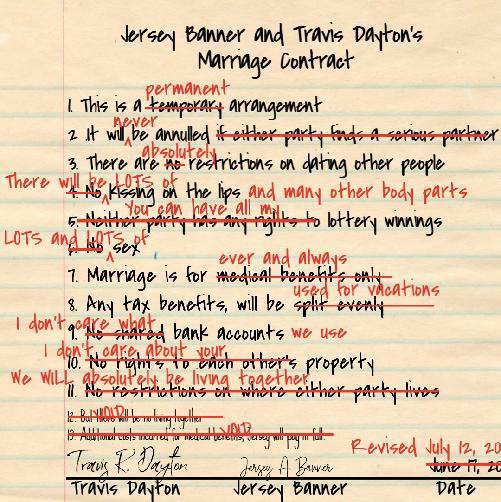 Jersey Banner and Travis Dayton's
Marriage Contract
permanent
1. This is a temporary arrangement
never
2. It will be annulled if either party finds a serious partner
absolutely
3. There are no restrictions on dating other people
There will be LOTS of
4. No kissing on the lips and many other body parts
You can have all my
5. Neither party has any rights to lottery winnings
LOTS and LOTS of
6. No sex
ever and always
7. Marriage is for medical benefits only
used for vacations
8. Any tax benefits, will be split evenly
I don't care what
9. No shared bank accounts we use
I don't care about your
10. No rights to each other's property
We WILL absolutely be living together
11. No restrictions on where either party lives
VOID
12. But there will be no living together
VOID
13. Additional costs incurred for medical benefits, Jersey will pay in full.
Revised July 12, 20
Travis K. Dayton Jersey A Banner June 17, 20
Travis Dayton Jersey Banner Date